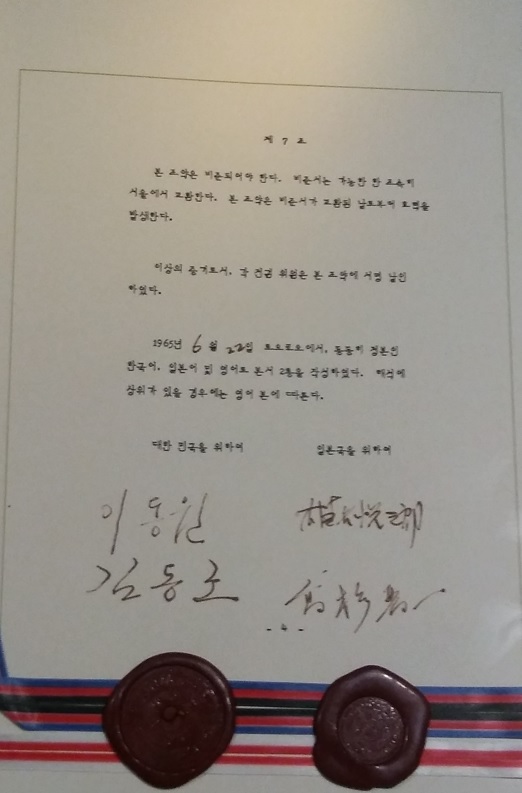 제 7 조
본 조약은 비준되어야 한다. 비준서는 가능한 한 조속히
서울에서 교환한다. 본 조약은 비준서가 교환된 날로부터 효력을
발생한다.
이상의 증거로서, 각 전권 위원은 본 조약에 서명 날인
하였다.
1965년 6 월 22일 토오쿄오에서, 동등히 정본인
한국어, 일본어 및 영어로 본서 2통을 작성하였다. 해석에
상위가 있을 경우에는 영어 본에 따른다.
대한 민국을 위하여 일본국을 위하여
이동원 椎名悦三郎
김동조 高杉晋一
- 4 -